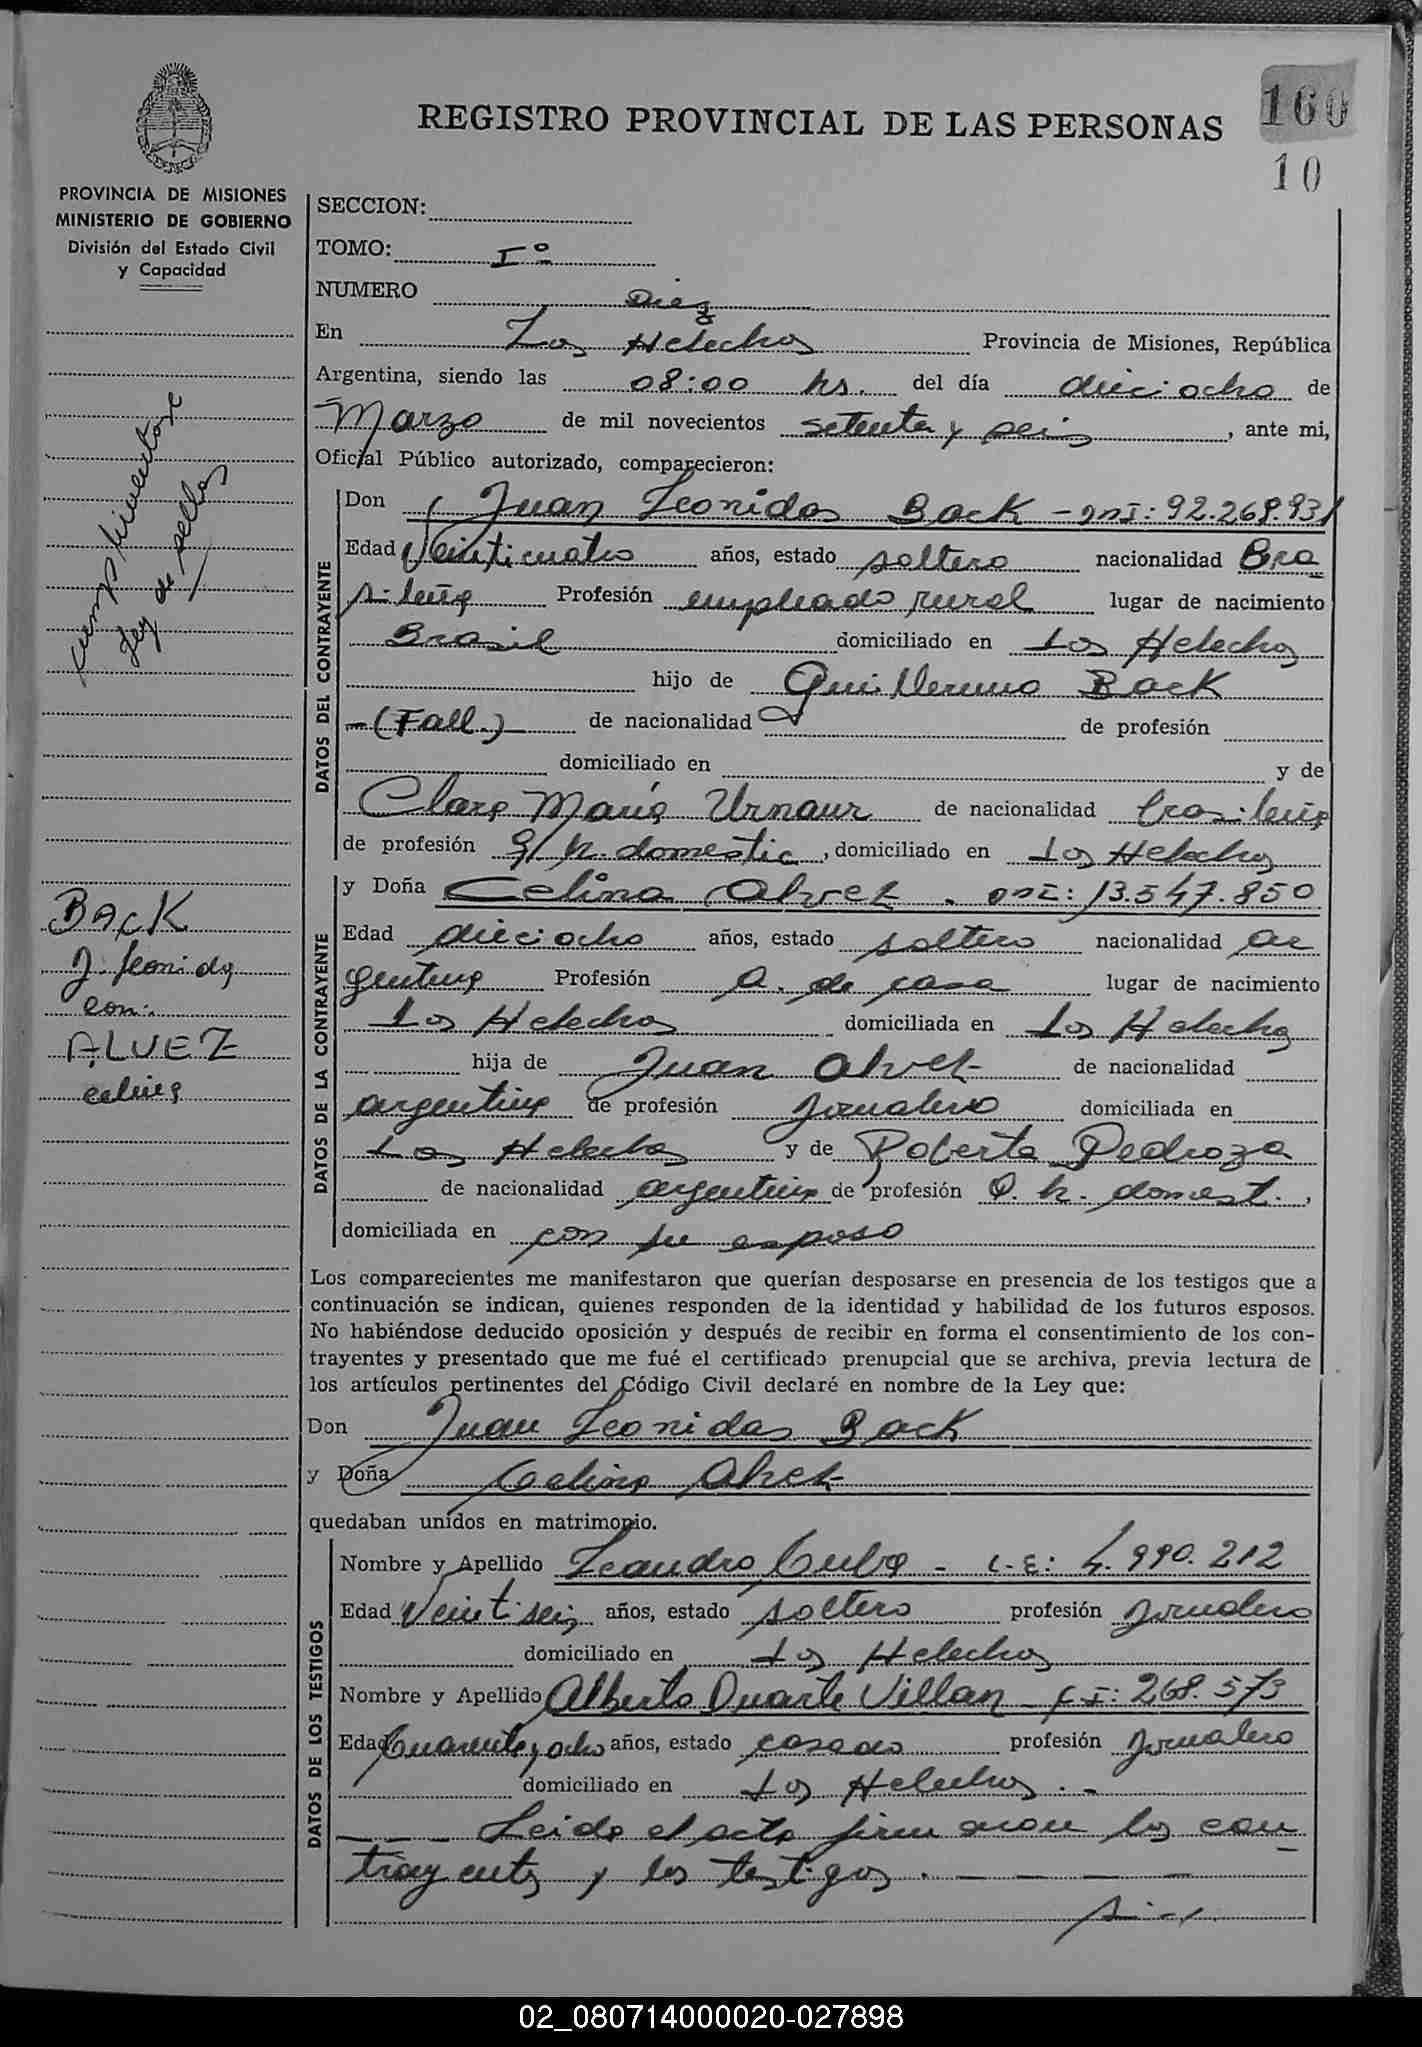 REGISTRO PROVINCIAL DE LAS PERSONAS
160
10
PROVINCIA DE MISIONES
MINISTERIO DE GOBIERNO
División del Estado Civil
y Capacidad
SECCION:
TOMO: Iº
NUMERO Diez
En Los Helechos Provincia de Misiones, República
Argentina, siendo las 08:00 hs. del día dieciocho de
Marzo de mil novecientos setenta y seis, ante mi,
Oficial Público autorizado, comparecieron:
DATOS DEL CONTRAYENTE
Don Juan Leonidas Back - DNI: 92.269.931
Edad Veinticuatro años, estado soltero nacionalidad Bra
sileña Profesión empleado rural lugar de nacimiento
Brasil domiciliado en Los Helechos
hijo de Guillermo Back
-(Fall.)- de nacionalidad de profesión
domiciliado en y de
Clara María Urnaur de nacionalidad brasileña
de profesión Q. h. domestic, domiciliado en Los Helechos
DATOS DE LA CONTRAYENTE
y Doña Celina Alvez . DNI: 13.547.850
Edad dieciocho años, estado soltera nacionalidad ar
gentina Profesión a. de casa lugar de nacimiento
Los Helechos domiciliada en Los Helechos
hija de Juan Alvez de nacionalidad
argentina de profesión Jornalero domiciliada en
Los Helechos y de Roberta Pedroza
de nacionalidad argentina de profesión Q. h. domest.,
domiciliada en con su esposo
Los comparecientes me manifestaron que querían desposarse en presencia de los testigos que a
continuación se indican, quienes responden de la identidad y habilidad de los futuros esposos.
No habiéndose deducido oposición y después de recibir en forma el consentimiento de los con-
trayentes y presentado que me fué el certificado prenupcial que se archiva, previa lectura de
los artículos pertinentes del Código Civil declaré en nombre de la Ley que:
Don Juan Leonidas Back
y Doña Celina Alvez
quedaban unidos en matrimonio.
DATOS DE LOS TESTIGOS
Nombre y Apellido Leandro - L.E: 4.990.212
Edad Veintiseis años, estado soltero profesión Jornalero
domiciliado en Los Helechos
Nombre y Apellido Alberto Duarte Villan - C.I: 268.573
Edad Cuarenta y ocho años, estado casado profesión Jornalero
domiciliado en Los Helechos . -
- - - Leida el acta firmaron los con
trayentes y los testigos . - - - -
cumplimentose
ley de sellos
BACK
J. Leonidas
con:
ALVEZ
celina
02_080714000020-027898